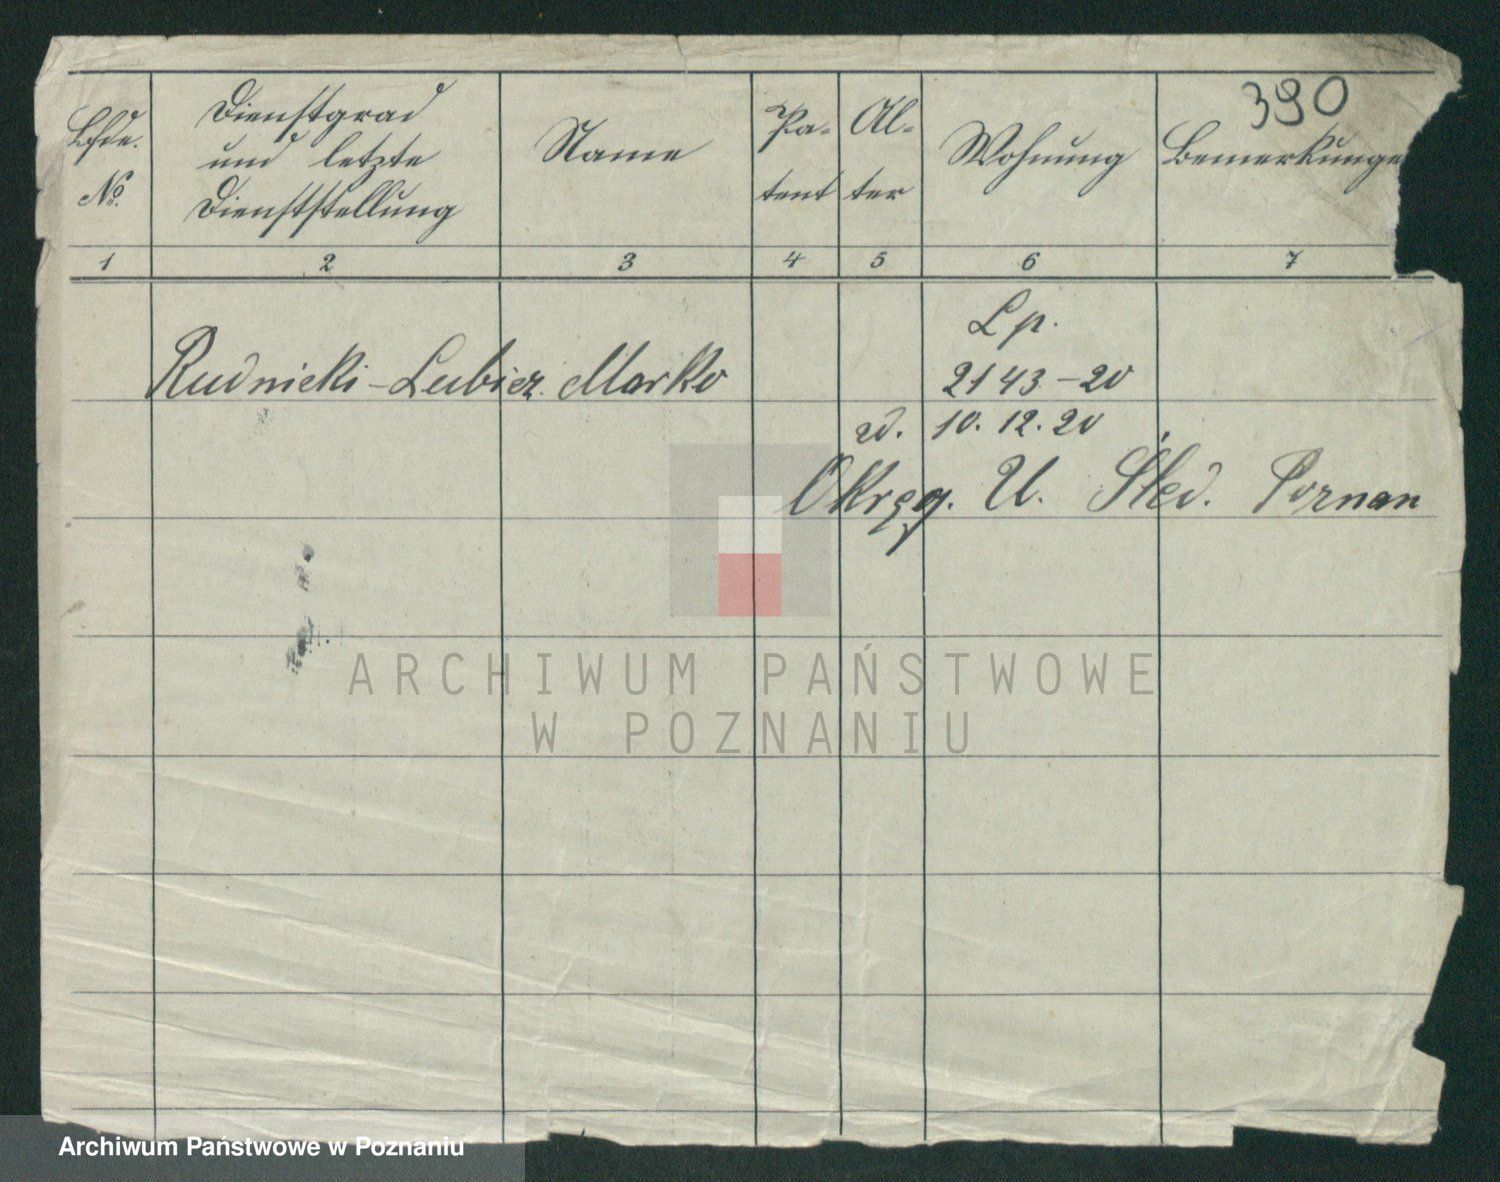 390
Lfde. No.
Dienstgrad und letzte Dienststellung
Name
Pa-tent
Al-ter
Wohnung
Bemerkunge
1 2 3 4 5 6 7
Lp.
Rudnicki-Lubicz Marko 2143-20
zd. 10.12.20
Okręg. U. Śled. Poznan
ARCHIWUM PAŃSTWOWE
W POZNANIU
Archiwum Państwowe w Poznaniu